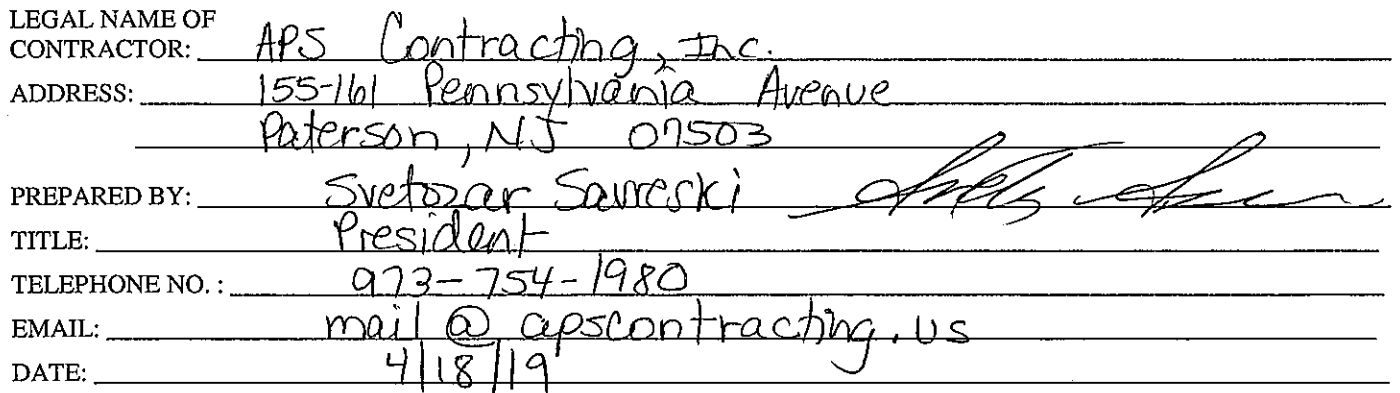 LEGAL NAME OF
CONTRACTOR: APS Contracting, Inc.
ADDRESS: 155-161 Pennsylvania Avenue
Paterson, NJ 07503
PREPARED BY: Svetozar Savreski
TITLE: President
TELEPHONE NO. : 973-754-1980
EMAIL: mail @ apscontracting.us
DATE: 4/18/19